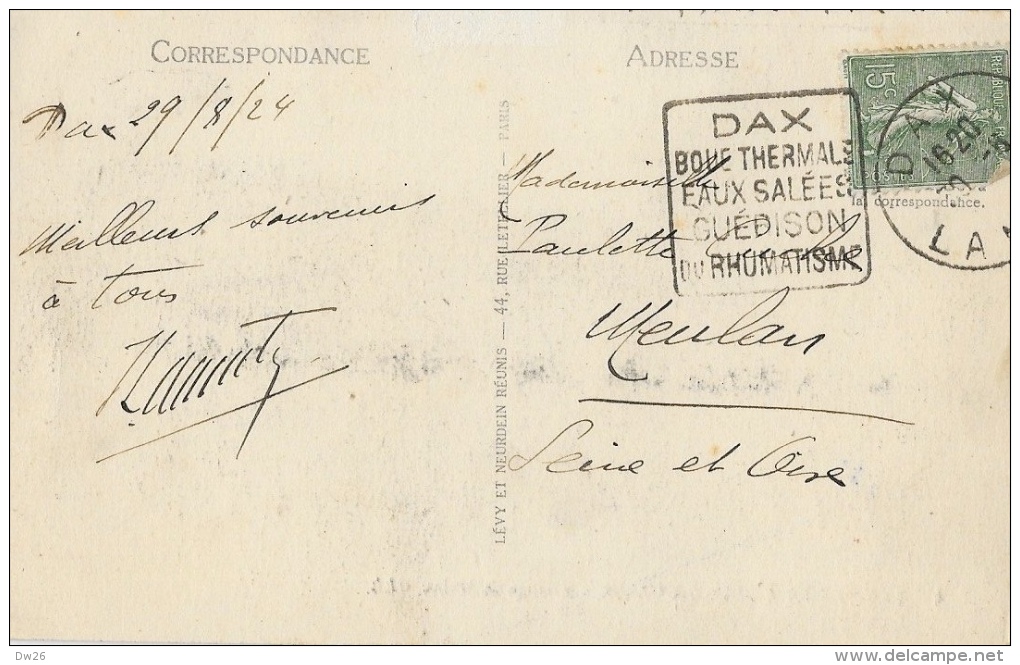 CORRESPONDANCE
Dax 29/8/24
Meilleurs souvenirs
à tous
LÉVY ET NEURDEIN RÉUNIS — 44, RUE LETELLIER — PARIS
ADRESSE
DAX
BOUE THERMALE
EAUX SALÉES
GUÉDISON
DU RHUMATISME
15c
POSTES
la correspondance.
DAX
16-20
LAN
Mademoiselle
Paulette
Meulan
Seine et Oise
Dw26
www.delcampe.net